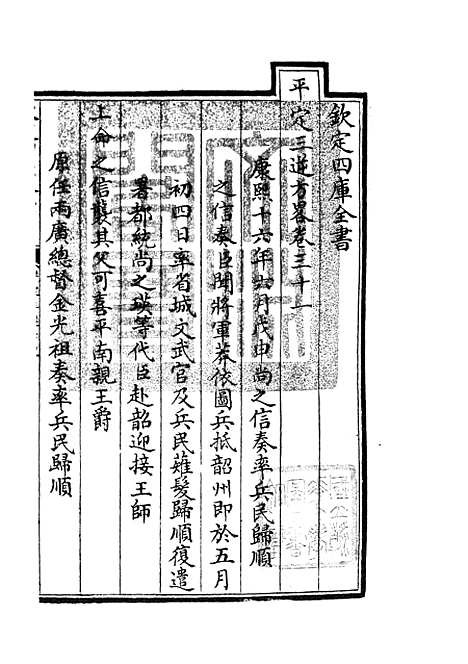 欽定四庫全書
平定三逆方畧卷三十一
康熙十六年六月戊申尚之信奏率兵民歸順
之信奏臣聞將軍莽依圖兵抵韶州即於五月
初四日率省城文武官及兵民薙髮歸順復遣
署都統尚之瑛等代臣赴韶迎接王師
上命之信襲其父可喜平南親王爵
原任兩廣總督金光祖奏率兵民歸順